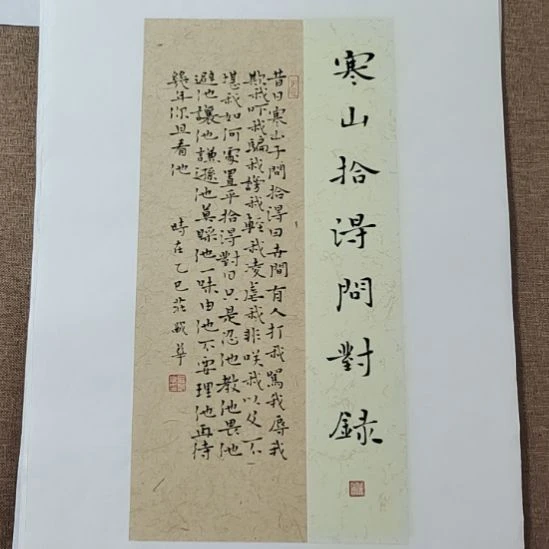 寒山拾得問對錄
昔日寒山子問拾得曰世間有人打我罵我辱我
欺我吓我騙我謗我輕我凌虐我非咲我以及不
堪我如何處置乎拾得對曰只是忍他教他畏他
避他讓他謙遜他莫睬他一味由他不要理他再待
幾年你且看他 時在乙巳莊華